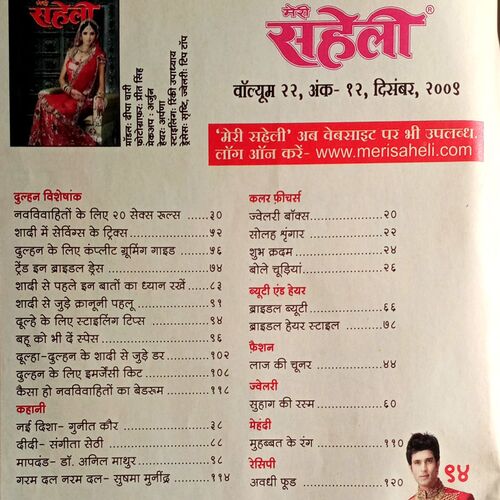 मेरी
सहेली
मॉडल: दीपा चारी
फ़ोटोग्राफ़र: प्रीत सिंह
मेकअप: अर्जुन
हेयर: अर्पणा
स्टाइलिंग: रिंकी उपाध्याय
ड्रेसेस: सृष्टि, ज्वेलरी: टिप टॉप
मेरी
सहेली®
वॉल्यूम २२, अंक- १२, दिसंबर, २००९
'मेरी सहेली' अब वेबसाइट पर भी उपलब्ध.
लॉग ऑन करें- www.merisaheli.com
दुल्हन विशेषांक
नवविवाहितों के लिए २० सेक्स रूल्स .....३०
शादी में सेविंग्स के ट्रिक्स ................५२
दुल्हन के लिए कंप्लीट ग्रूमिंग गाइड .....५६
ट्रेंड इन ब्राइडल ड्रेस ...................७४
शादी से पहले इन बातों का ध्यान रखें ....८३
शादी से जुड़े क़ानूनी पहलू ...............९१
दूल्हे के लिए स्टाइलिंग टिप्स ............९४
बहू को भी दें स्पेस ......................९६
दूल्हा- दुल्हन के शादी से जुड़े डर .......१०२
दुल्हन के लिए इमर्जेंसी किट ...........१०८
कैसा हो नवविवाहितों का बेडरूम .......११८
कहानी
नई दिशा- गुनीत कौर ..................३८
दीदी- संगीता सेठी .....................८८
मापदंड- डॉ. अनिल माथुर ..............९८
गरम दल नरम दल- सुषमा मुनींद्र .......११४
कलर फ़ीचर्स
ज्वेलरी बॉक्स ...................२०
सोलह शृंगार ....................२२
शुभ क़दम .......................२४
बोले चूड़ियां .....................२६
ब्यूटी एंड हेयर
ब्राइडल ब्यूटी ...................६६
ब्राइडल हेयर स्टाइल ............७८
फ़ैशन
लाज की चूनर ...................४४
ज्वेलरी
सुहाग की रस्म ..................६०
मेहंदी
मुहब्बत के रंग .................११०
रेसिपी
अवधी फूड .....................१२०
९४